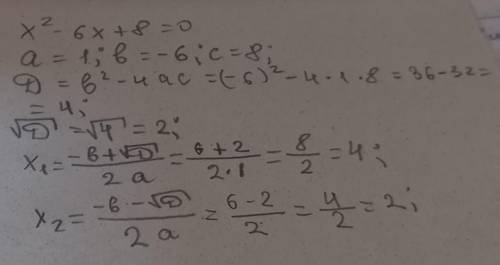 x² - 6x + 8 = 0
a = 1; в = -6; c = 8;
D = в² - 4ac = (-6)² - 4·1·8 = 36 - 32 =
= 4;
√D = √4 = 2;
x₁ = (-в + √D)/(2a) = (6 + 2)/(2·1) = 8/2 = 4;
x₂ = (-в - √D)/(2a) = (6 - 2)/2 = 4/2 = 2;